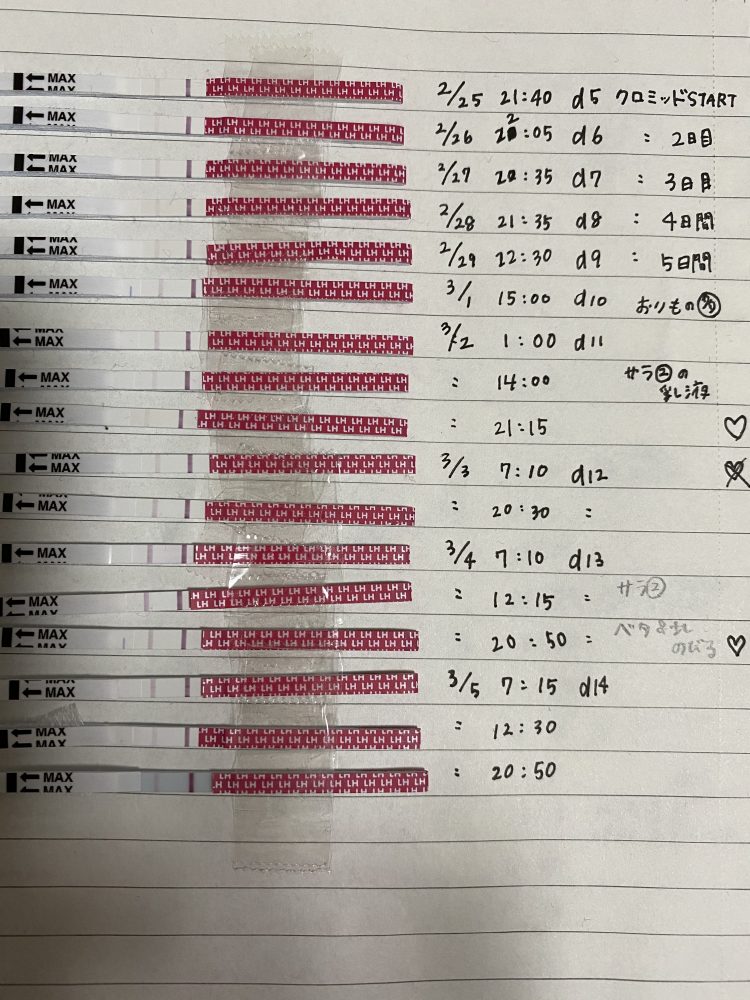 MAX 2/25 21:40 d5 クロミッドSTART
MAX 2/26 22:05 d6 : 2日目
MAX 2/27 20:35 d7 : 3日目
MAX 2/28 21:35 d8 : 4日間
MAX 2/29 22:30 d9 : 5日間
MAX 3/1 15:00 d10 おりもの
MAX 3/2 1:00 d11
MAX : 14:00 サラ②の乳液
MAX : 21:15 ♡
MAX 3/3 7:10 d12
MAX : 20:30 :
MAX 3/4 7:10 d13
MAX : 12:15 : サラ②
MAX : 20:50 = ベタ&乳 のびる ♡
MAX 3/5 7:15 d14
MAX : 12:30
MAX : 20:50